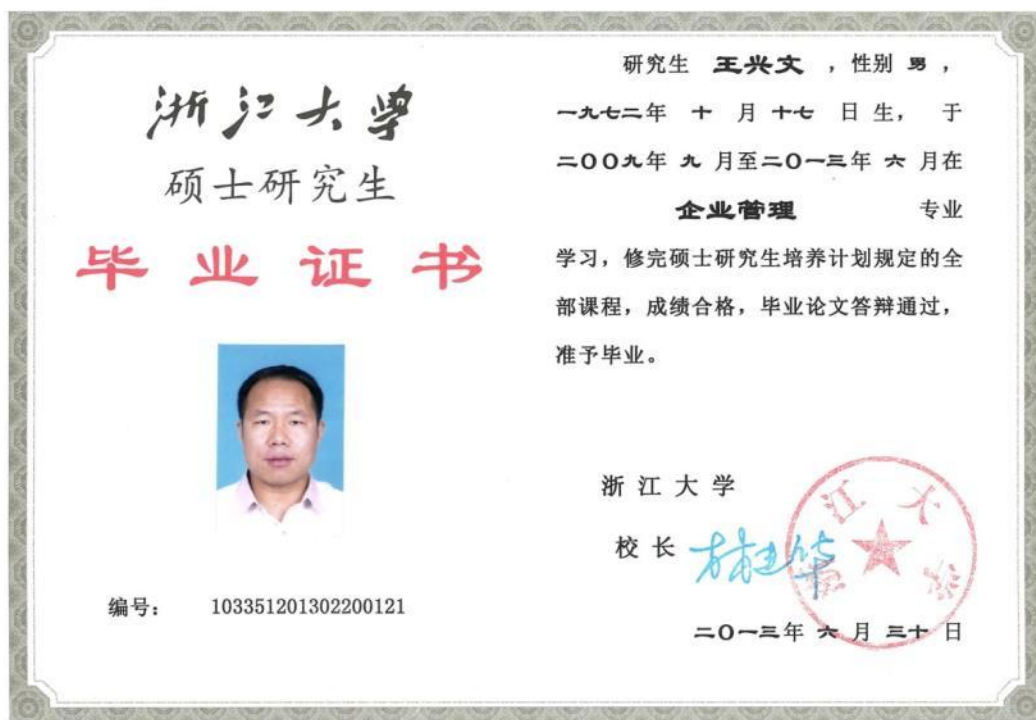 浙江大学
硕士研究生
毕业证书
编号: 103351201302200121
研究生 王兴文 ,性别 男 ,
一九七二年 十 月 十七 日 生, 于
二00九年 九 月至二0一三年 六 月在
企业管理 专业
学习,修完硕士研究生培养计划规定的全
部课程,成绩合格,毕业论文答辩通过,
准予毕业。
浙 江 大 学
校 长 林建华
浙江大学
二0一三年 六 月 三十 日